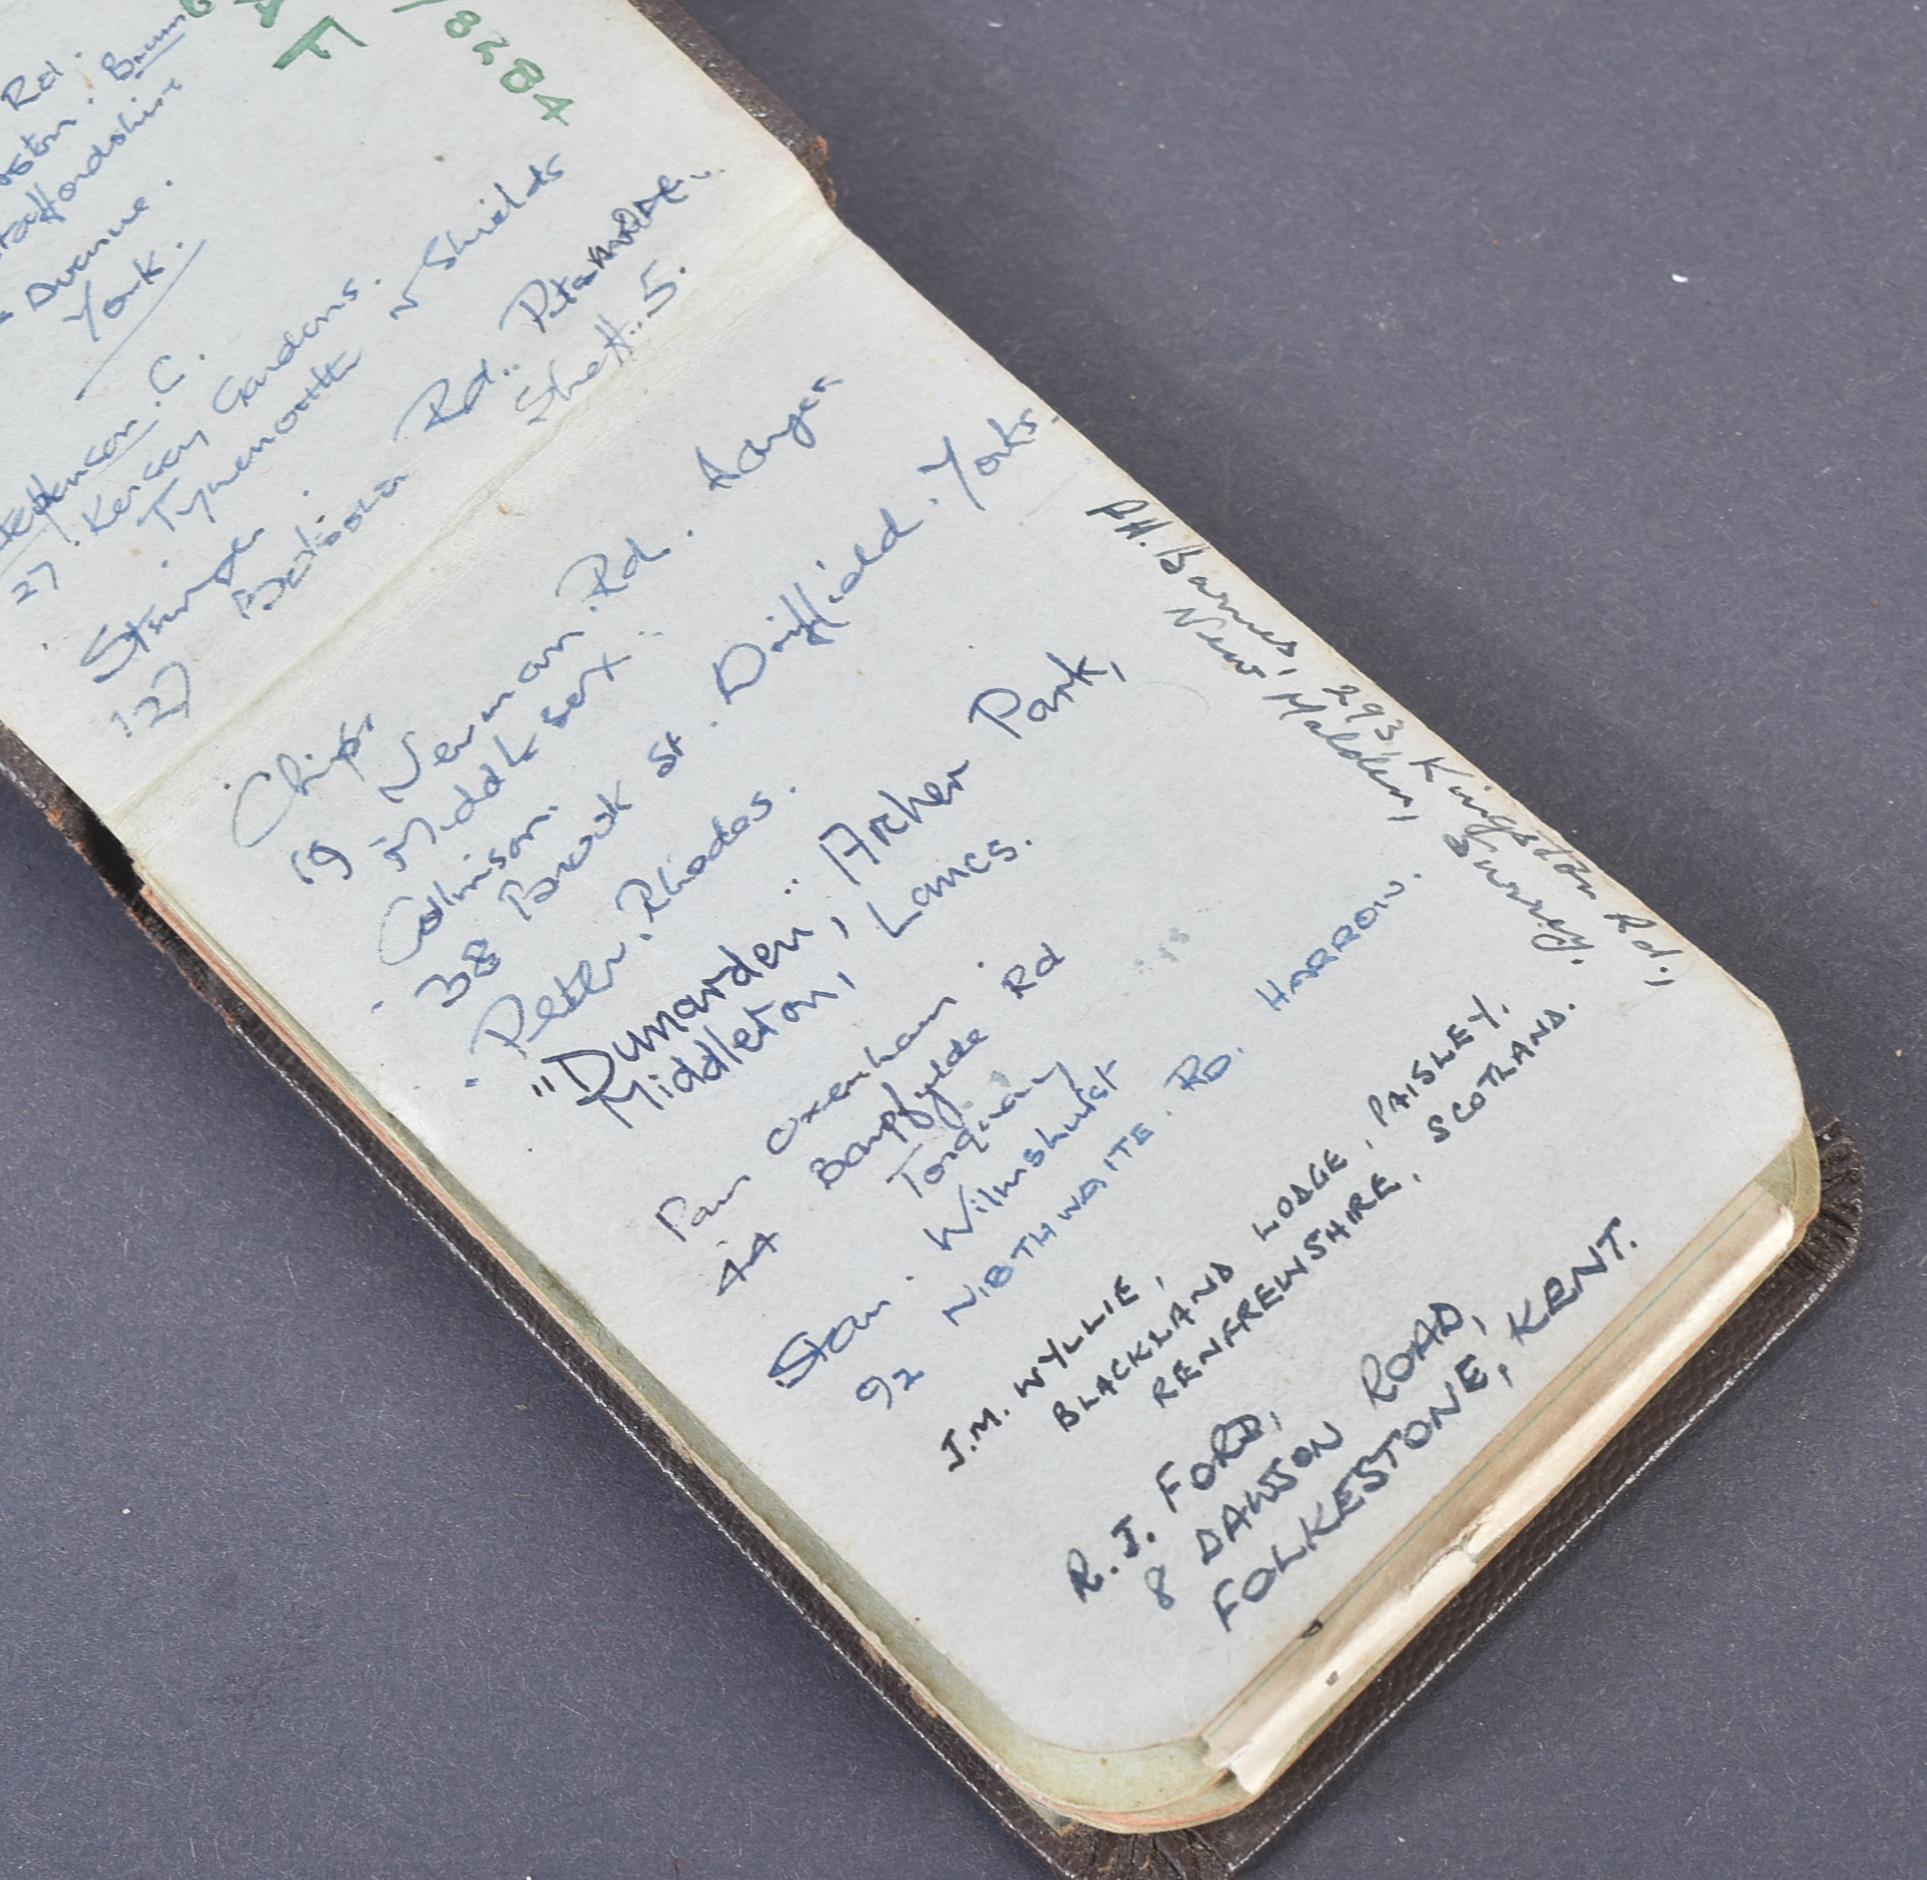 Rd.
Brum
Avenue.
York.
C.
27. Gardens.
Tynemouth N Shields
Stringer.
127 Rd..
Sheff..5.
AF
8284
Chips
19 Newman Rd. Hayes
Middlesex
Colinson.
38 Brook St. Driffield. Yorks.
Peter. Rhodes.
"Dunarden", Archer Park,
Middleton, Lancs.
Pam Oxenham.
44 Bampfylde Rd
Torquay
Stan. Wilmshurst
92 NIBTHWAITE. RD. HARROW.
J.M. WYLLIE,
BLACKLAND LODGE, PAISLEY.
RENFREWSHIRE, SCOTLAND.
R.J. FORD,
8 DAWSON ROAD,
FOLKESTONE, KENT.
P.H. Barnes, 293, Kingston Rd.,
New Malden, Surrey.